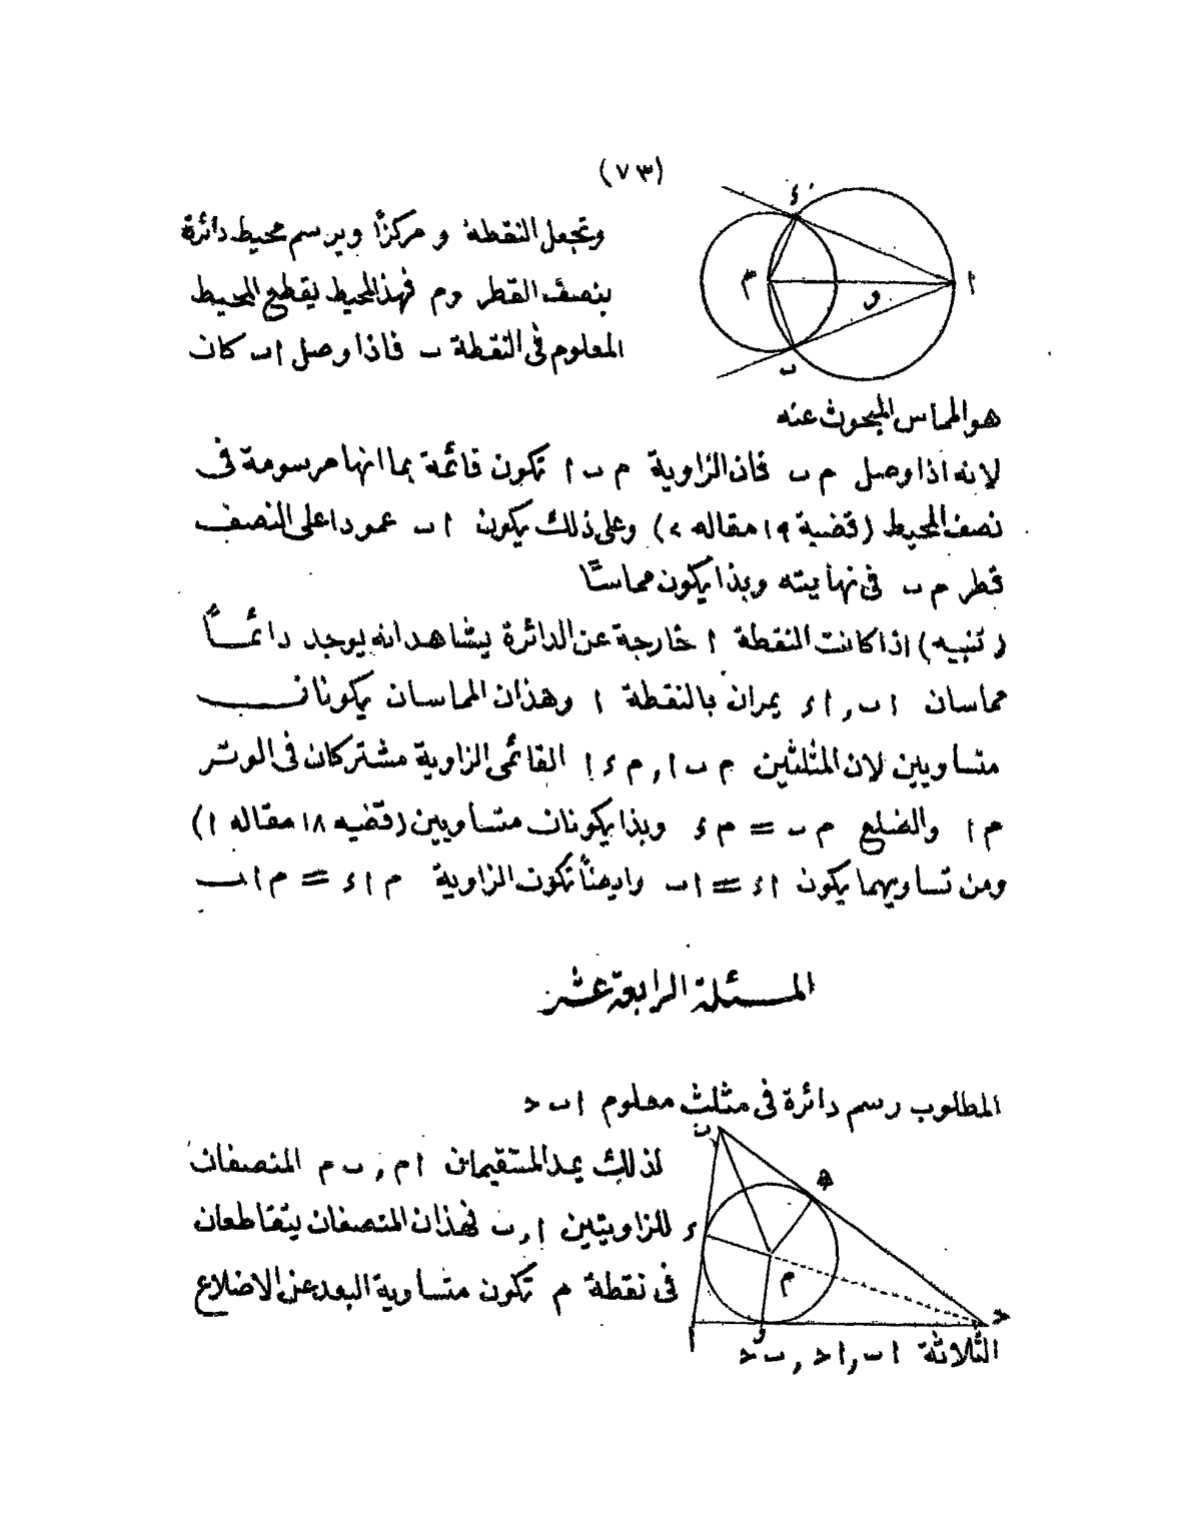 (٧٣)
وتجعل النقطة و مركزاً ويرسم محيط دائرة
بنصف القطر وم فهذا المحيط يقطع المحيط
المعلوم فى النقطة ب فاذا وصل اب كان
هو المماس المبحوث عنه
لانه اذا وصل م ب فان الزاوية م ب ا تكون قائمة بما انها مرسومة فى
نصف المحيط (قضية ١٩ مقاله ٢) وعلى ذلك يكون ا ب عمودا على النصف
قطر م ب فى نهايته وبذا يكون مماسًّا
(تنبيه) اذا كانت النقطة ا خارجة عن الدائرة يشاهد انه يوجد دائمًا
مماسان ا ب , ا ء يمران بالنقطة ا وهذان المماسان يكونان
متساويين لان المثلثين م ب ا , م ء ا القائمى الزاوية مشتركان فى الوتر
م ا والضلع م ب = م ء وبذا يكونان متساويين (قضيه ١٨ مقاله ١)
ومن تساويهما يكون ا ء = ا ب وايضاً تكون الزاوية م ا ء = م ا ب
المسئلة الرابعة عشر
المطلوب رسم دائرة فى مثلث معلوم ا ب ح
لذلك يمد المستقيمان ا م , ب م المنصفان
للزاويتين ا , ب فهذان المنصفان يتقاطعان
فى نقطة م تكون متساوية البعد عن الاضلاع
الثلاثة ا ب , ا ح , ب ح
ء
م
و
ا
ب
ب
ه
ء
م
ا
و
ح